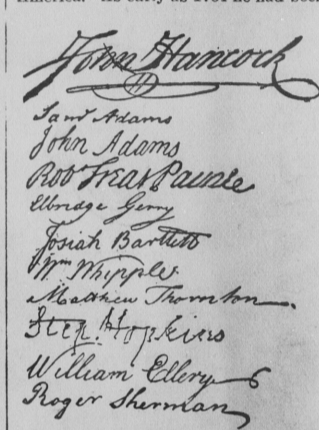 John Hancock
H
Saml Adams
John Adams
Robt Treat Paine
Elbridge Gerry
Josiah Bartlett
Wm Whipple
Matthew Thornton
Step. Hopkins
William Ellery
Roger Sherman